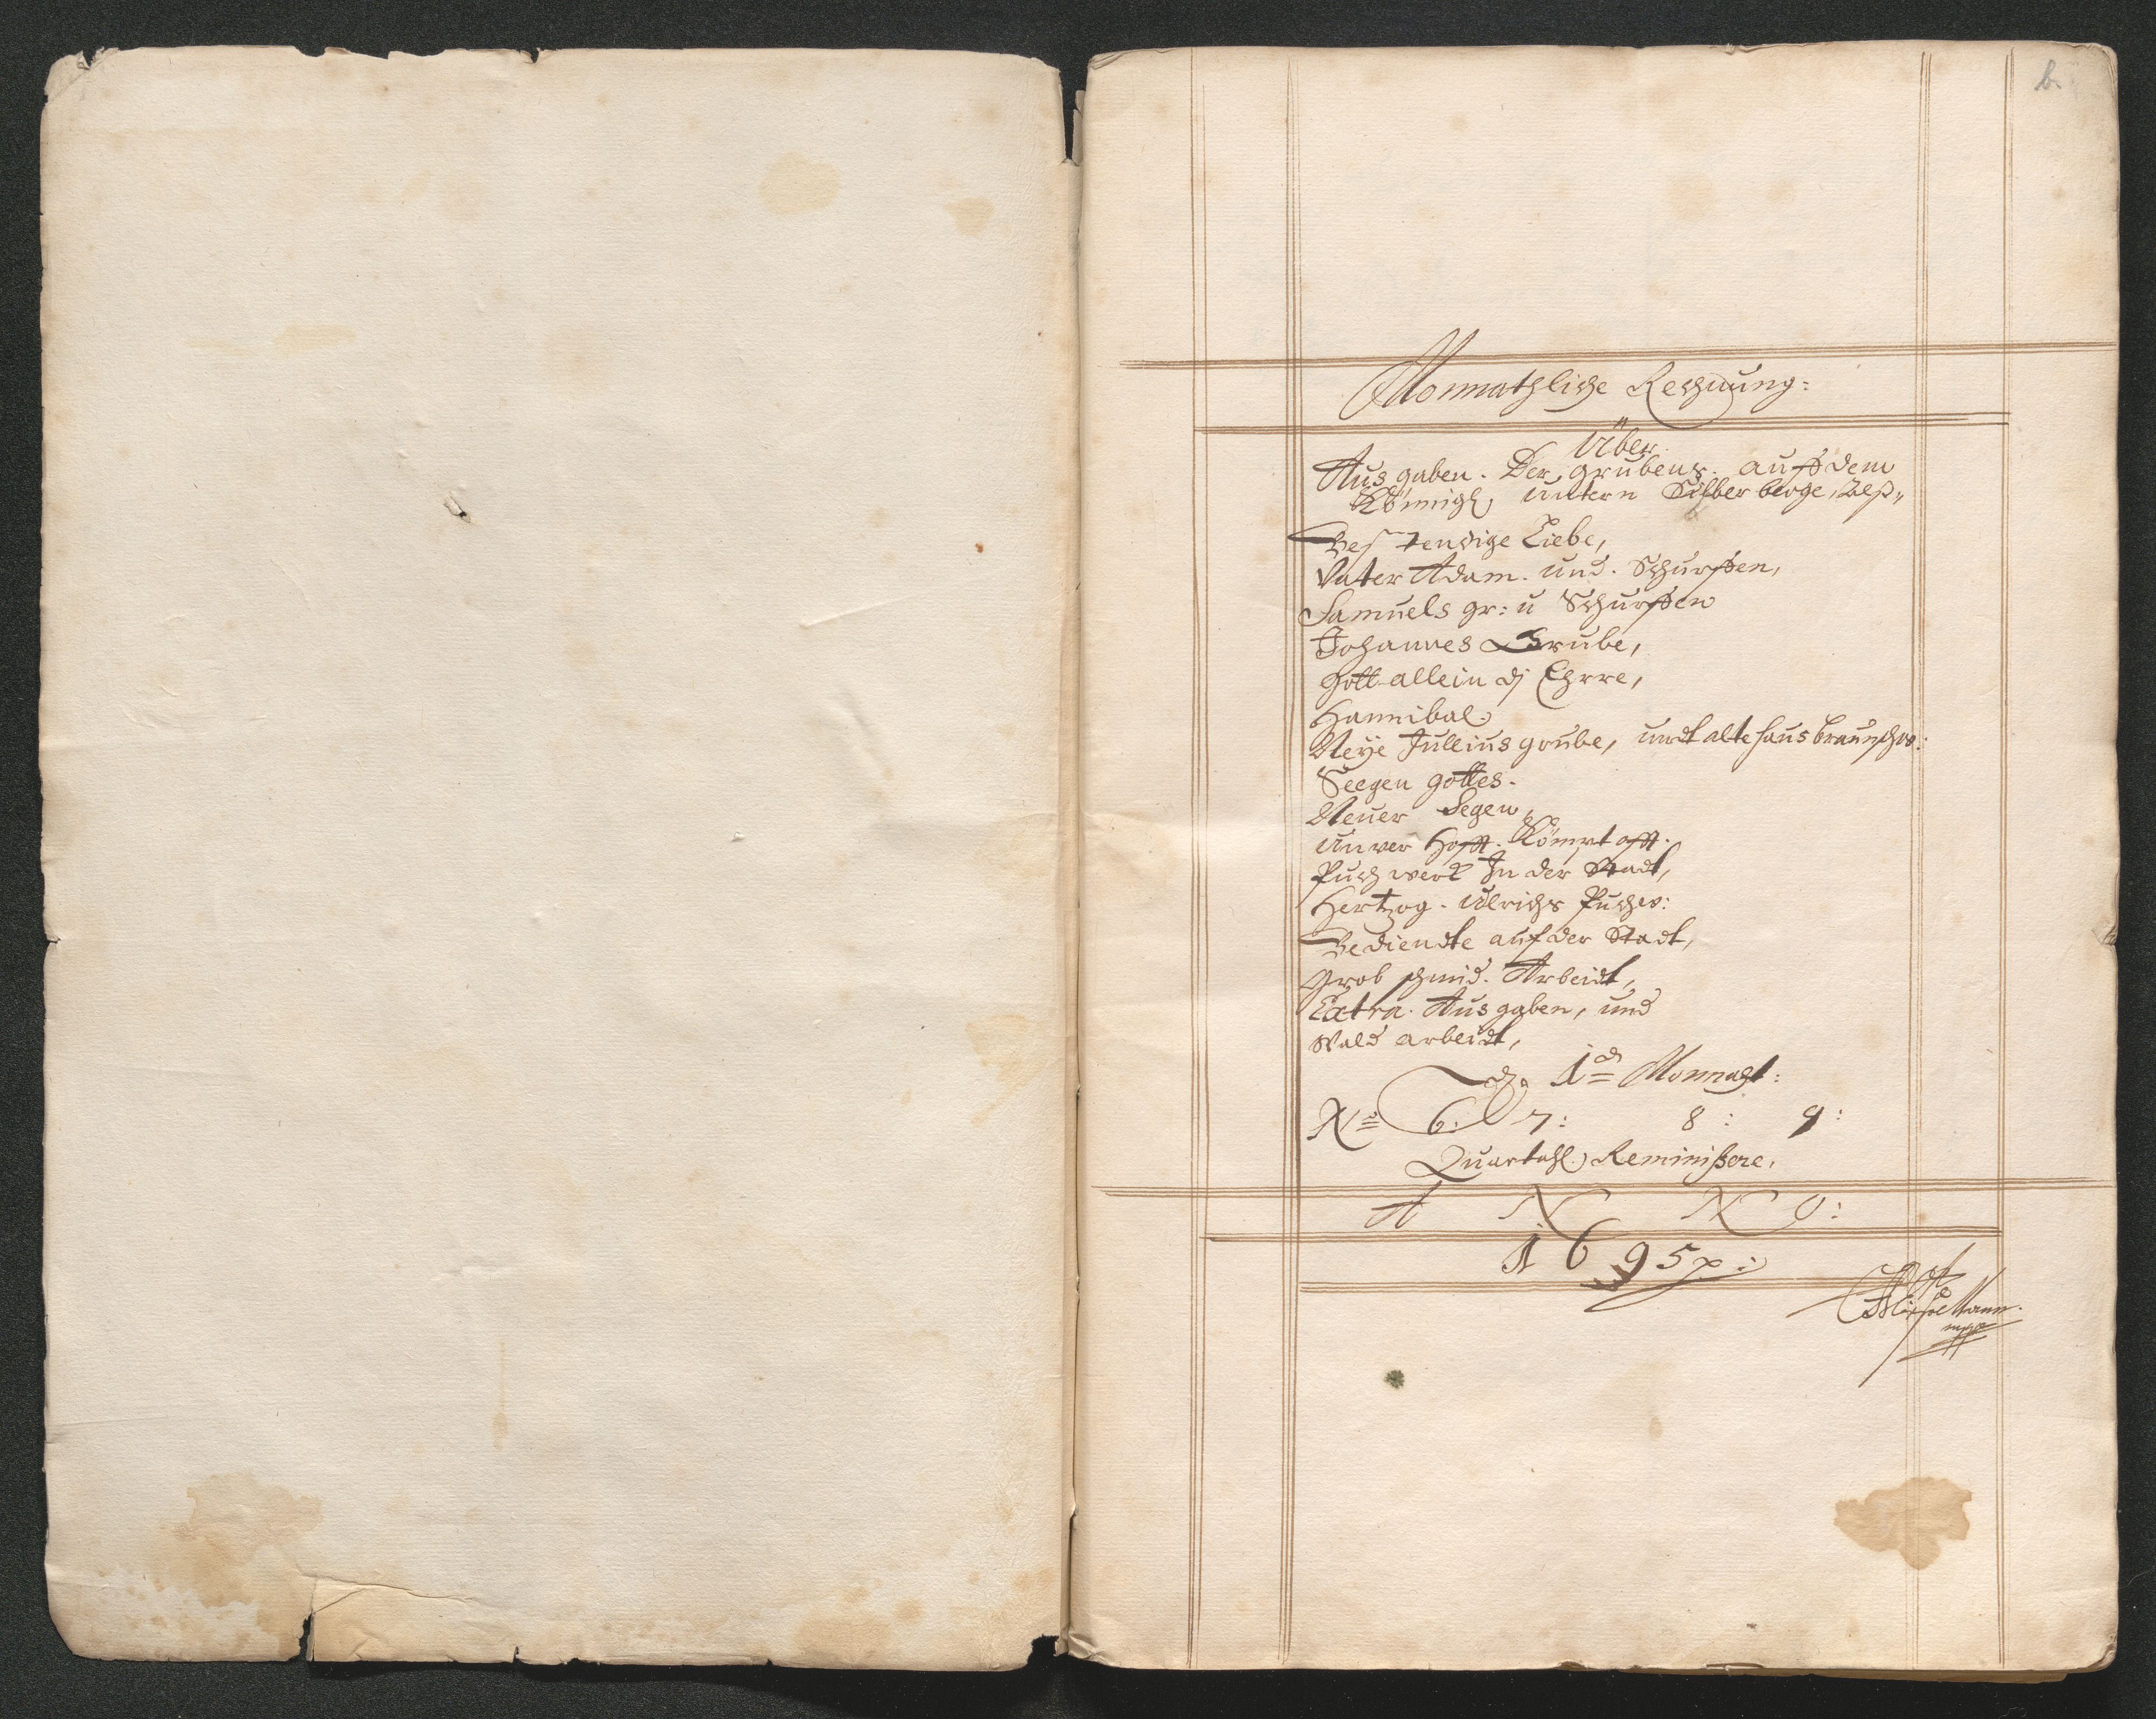 b.
Monnathliche Rechnung:
Über
Ausgaben. Der grubens. auff dem
Königl. untern Silberberge, Alß„
Bestendige Liebe,
Vater Adam. und. Schurffen,
Samuels gr: u Schurffen
Johannes Grube,
Gott allein dj Ehrre,
Hannibal.
Neye Jullius grube, undt alte haus braunschw:
Seegen Gottes.
Neuer Segen,
Unver Hofft. Kömpt offt.
Puch werk In der Stadt,
Hertzog. Ulrichs Puchw:
Bediendte auf der Stadt,
Grob schmid. Arbeidt,
Extra. Ausgaben, und
Wald arbeidt,
1 Monnaht:
No 6: 7: 8: 9:
Quartahl Reminißere,
A N N O:
1695
mpp